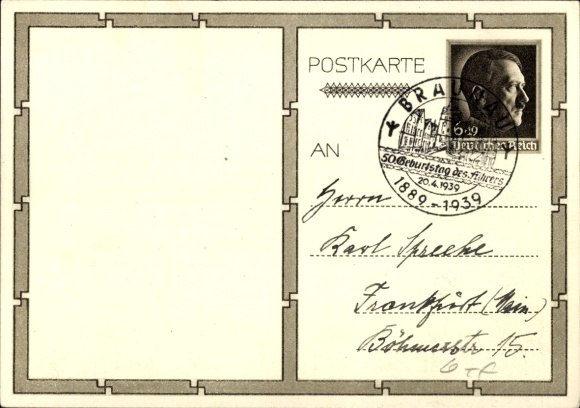 POSTKARTE
6+19
Deutsches Reich
BRAUNAU
50. Geburtstag des Führers
20.4.1939
1889-1939
AN
Herrn
Karl Sprecke
Frankfurt (Main)
Böhmerstr 15.